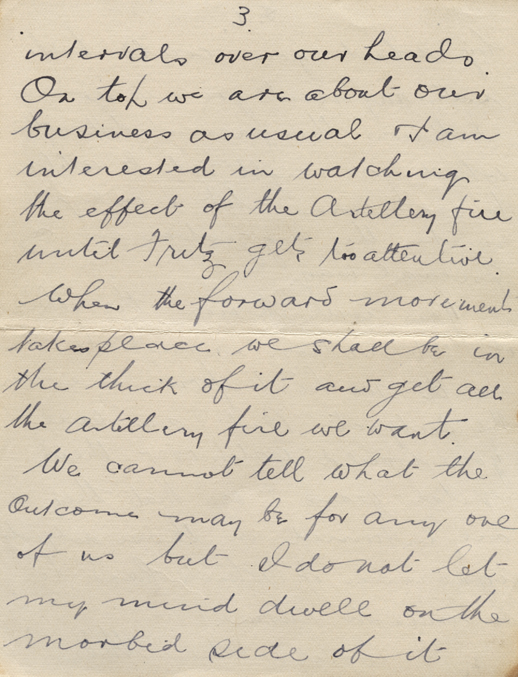 3
intervals over our heads.
On top we are about our
business as usual & I am
interested in watching
the effect of the Artillery fire
until Fritz gets too attentive.
When the forward movement
takes place we shall be in
the thick of it and get all
the artillery fire we want.
We cannot tell what the
outcome may be for any one
of us but I do not let
my mind dwell on the
morbid side of it